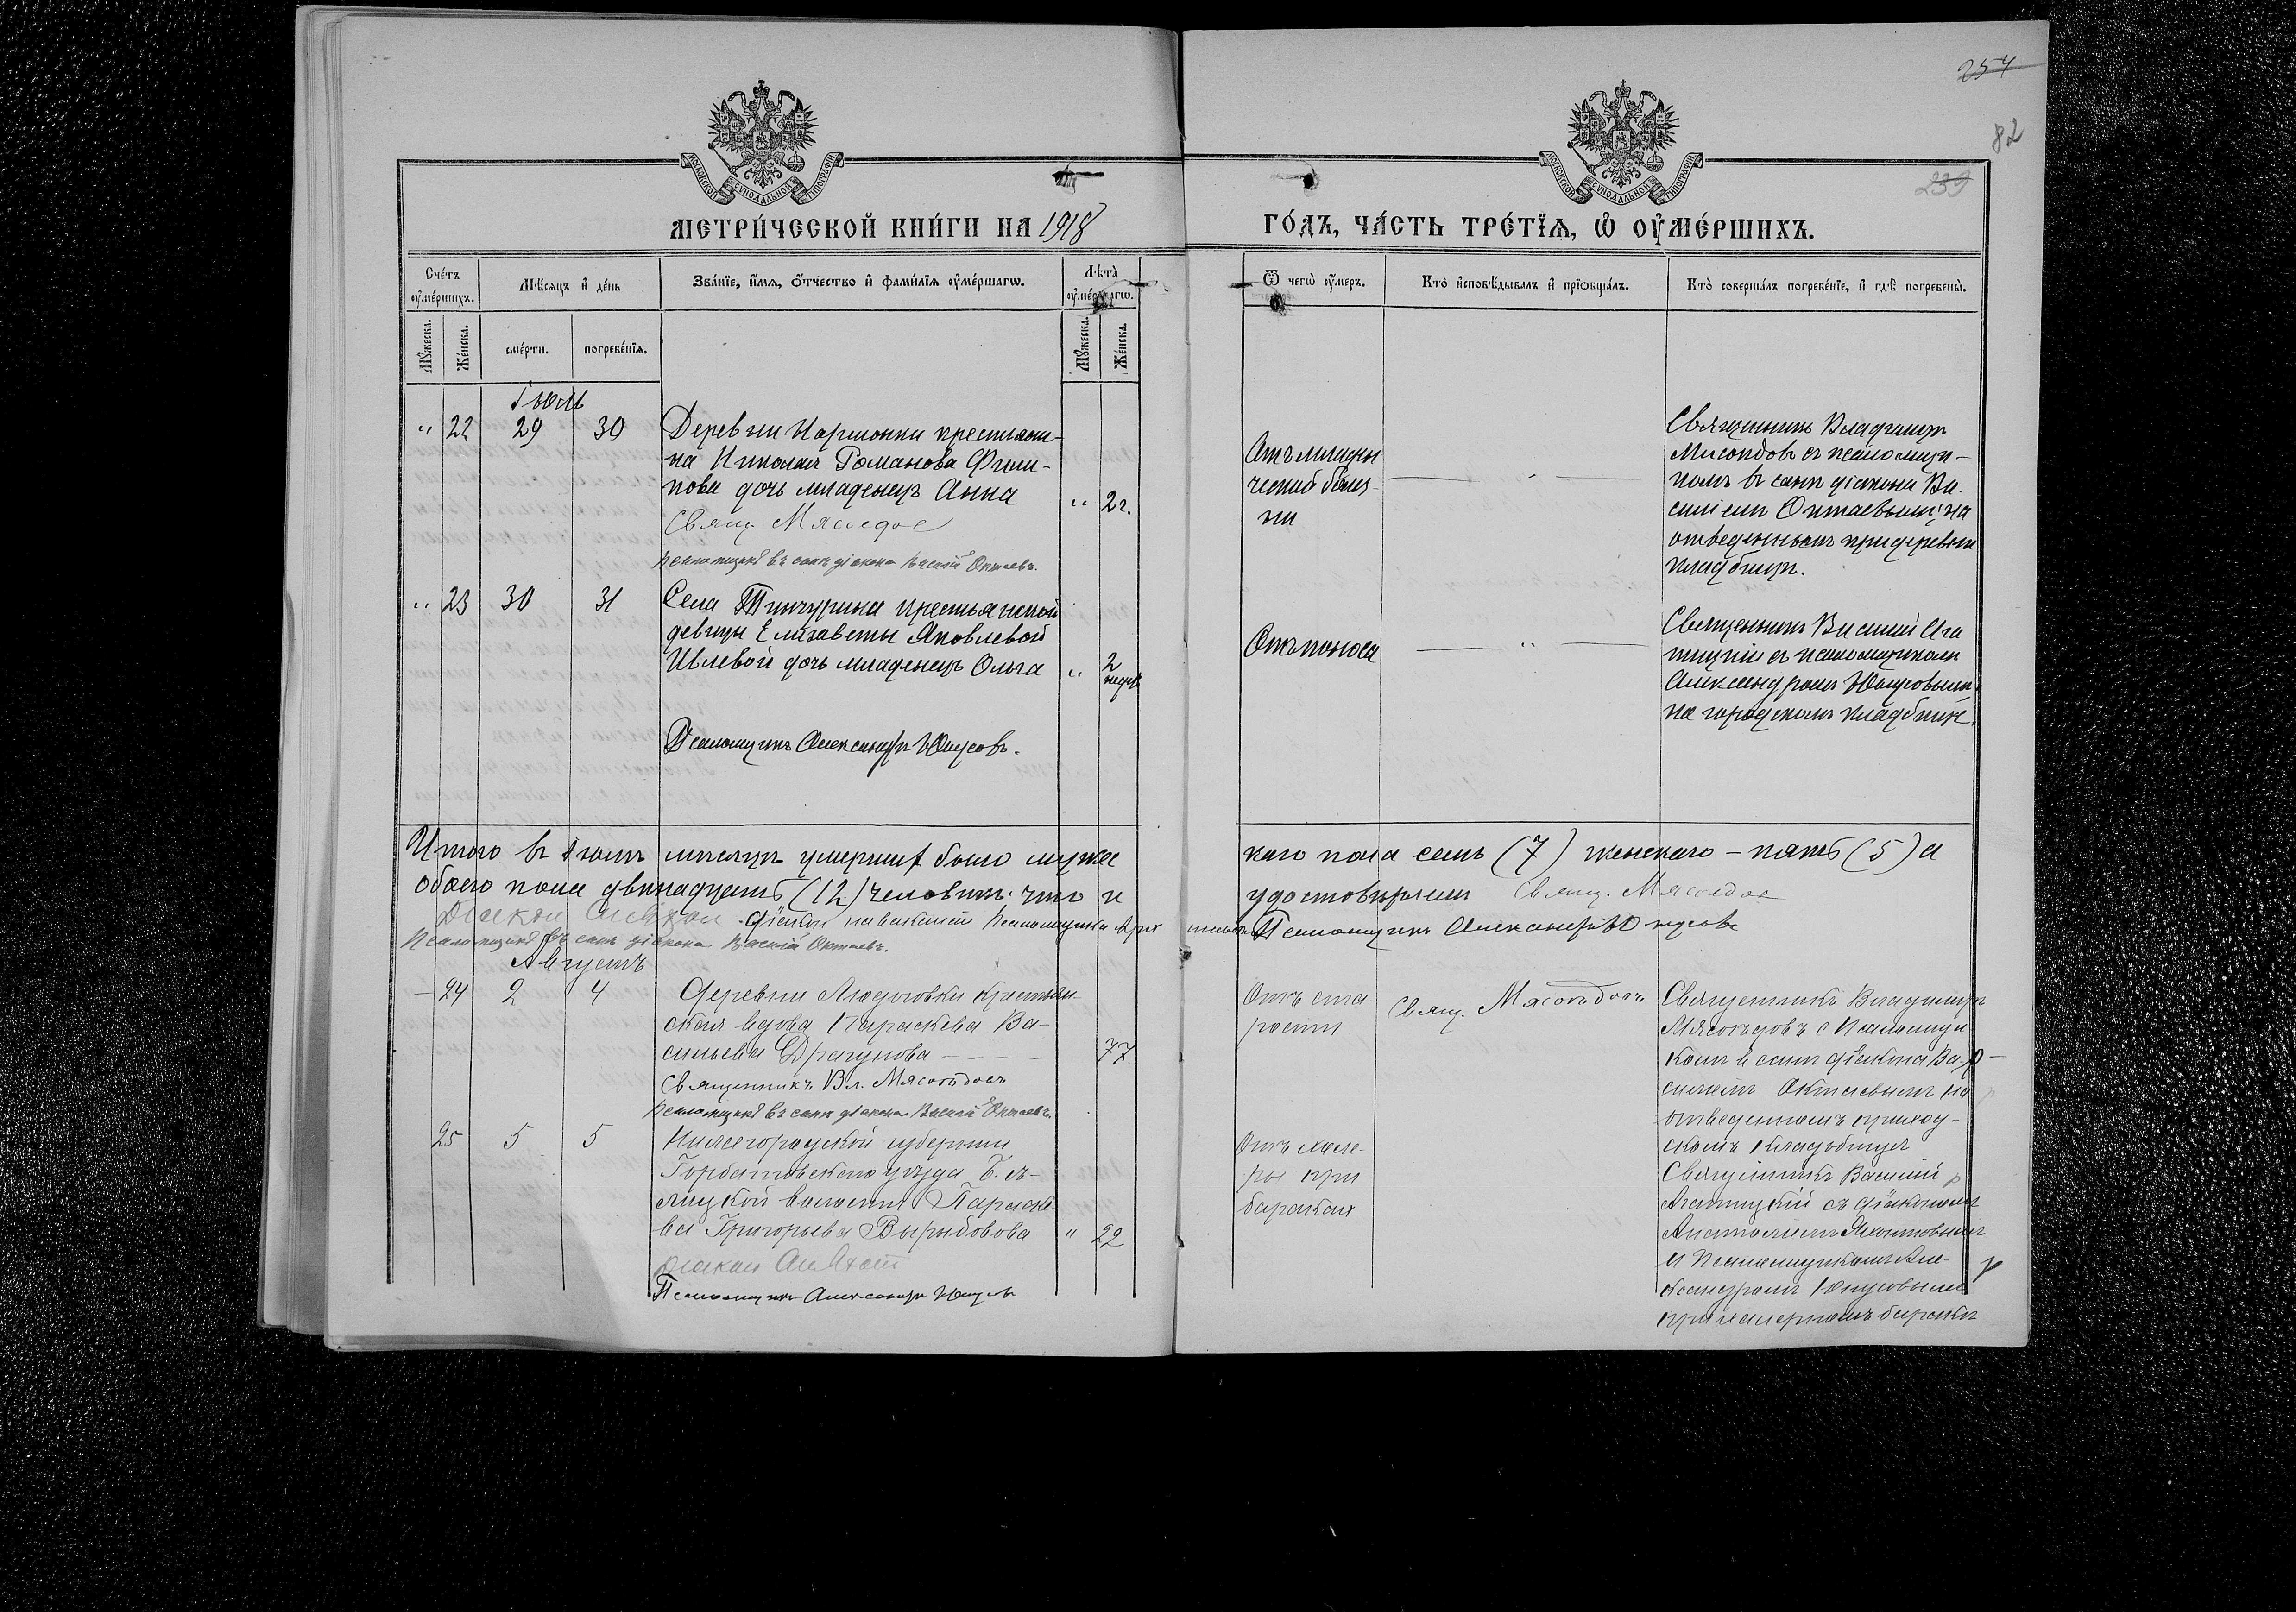 254
82
239
МОСКОВСКОЙ СѴНОДАЛЬНОЙ ТИПОГРАФІИ
МОСКОВСКОЙ СѴНОДАЛЬНОЙ ТИПОГРАФІИ
МЕТРИ́ЧЕСКОЙ КНИ́ГИ НА 1918 ГО́ДЪ, ЧА́СТЬ ТРЕ́ТЇѦ, Ѡ҆ ОУ҆МЕ́РШИХЪ.
Сче́тъ оу҆ме́ршихъ.
Мѣ́сяцъ и҆ де́нь
Зва́нїе, и҆́мѧ, ѻ҆́тчество и҆ фами́лїѧ оу҆ме́ршагѡ.
Лѣ́та оу҆ме́ршагѡ.
Ѿ чегѡ̀ оу҆́меръ.
Кто̀ и҆сповѣ́дывалъ и҆ прїѡбща́лъ.
Кто̀ соверша́лъ погребе́нїе, и҆ гдѣ̀ погребены̀.
Мꙋ́жеска.
Же́нска.
сме́рти.
погребе́нїѧ.
Мꙋ́жеска.
Же́нска.
Іюль
" 22 29 30
Деревни крестьяни-
на Николая Романова Фили-
пова дочь младенецъ Анна
" 2 г.
Свящ. Мясоедов
Псаломщикъ въ санѣ діакона Василій Октаевъ.
Отъ младен
ческой болѣз-
ни
Священникъ Владимиръ
Мясоѣдовъ съ псаломщи-
комъ въ санѣ діакона Ва-
силіемъ Октаевымъ на
отведенномъ при деревнѣ
кладбищѣ.
" 23 30 31
Села Тинчурина крестьянской
девицы Елизаветы Яковлевой
Ивлевой дочь младенецъ Ольга
" 2 недѣл
Псаломщикъ Александръ Юнусовъ.
Отъ поноса
Священникъ Василій Ага
тицкій съ псаломщикомъ
Александромъ Юнусовымъ
на городскомъ кладбищѣ.
Итого въ Іюлѣ мѣсяцѣ умершихъ было мужес
каго пола семь (7) женскаго – пять (5) а
обоего пола двѣнадцать (12) человѣкъ. что и
удостовѣряемъ Свящ. Мясоедов
Діакон діакон на вакансіи псаломщика
Псаломщикъ Александръ Юнусовъ
Псаломщикъ въ санѣ діакона Василій Октаевъ.
Августъ
– 24 2 4
Деревни Людоговки крестьян-
ская вдова Параскева Ва-
сильева Драгунова
77
Священникъ Вл. Мясоѣдовъ
Псаломщикъ въ санѣ діакона Василій Октаевъ.
Отъ ста-
рости
Свящ. Мясоѣдовъ
Священникъ Владимиръ
Мясоѣдовъ с Псаломщи
комъ в санѣ діакона Ва-
силіемъ Октаевымъ на
отведенномъ приход-
скомъ кладбищѣ
25 5 5
Нижегородской губерніи
Горбатовскаго уѣзда
волости Параске-
ва Григорьева Вырыбовова
" 22
Псаломщикъ Александръ Юнусовъ
Отъ холе-
ры при
баракахъ
Священникъ Василій
Агатицкій съ діакономъ
Анатоліемъ
и Псаломщикомъ Але-
ксандромъ Юнусовымъ
при холерномъ баракѣ